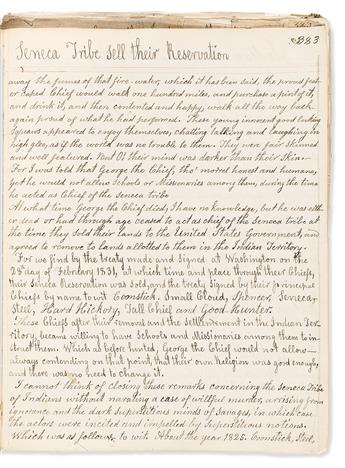 883
Seneca Tribe Sell their Reservation
away the fumes of that fire-water, which it has been said, the proud
Chief would walk one hundred miles, and purchase a pint of it,
and drink it, and then contented and happy, walk all the way back
again proud of what he had performed. These young innocent good looking
Squaws appeared to enjoy themselves, chatting talking and laughing in
high glee, as if the world was no trouble to them. They were fair skinned
and well featured. But O! their mind was darker than their Skin.
For I was told that George the Chief, tho' most honest and humane,
yet he would not allow Schools or Missionaries among them, during the time
he acted as Chief of the Seneca Tribe
At what time George the Chief died, I have no knowledge, but he was eith-
er dead or had through age ceased to act as chief of the Seneca tribe at
the time they sold their lands to the United States Government, and
agreed to remove to lands allotted to them in the Indian Territory.
For we find by the treaty made and signed at Washington on the
28th day of February 1831, at which time and place through their Chiefs,
their Seneca Reservation was sold, and the treaty signed by their principle
Chiefs by name to wit Coonstick, Small Cloud, Spencer, Seneca
Steel, Hard Hickory, Tall Chief and Good Hunter.
These Chiefs after their removal and the settlement in the Indian Ter-
ritory, became willing to have Schools and Missionaries among them to in-
struct them. Which as before hinted, George the Chief would not allow—
always contending on that point, that their own Religion was good enough,
and there was no need to change it.
I cannot think of closing these remarks concerning the Seneca Tribe
of Indians without narating a case of willful murder, arrising from
ignorance and the dark Superstitious minds of Savages, in which case
the actors were incited and impelled by Superstitious notions.
Which was as follows to wit. About the year 1825. Coonstick, Steel,